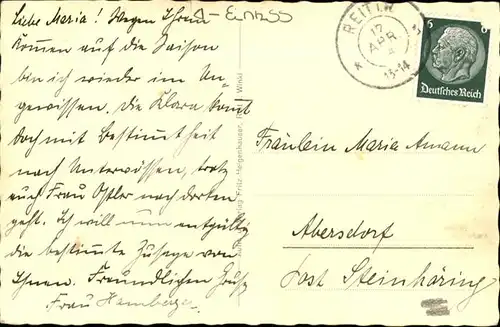 Liebe Maria! Wegen Ihrem
Kommen auf die Saison
bin ich wieder im Un-
gewissen. Die Klara kommt
doch mit Bestimmtheit
nach Unterwössen, trotz
auch Frau Ostler nach dorten
geht. Ich will nun entgültig
die bestimmte Zusage von
Ihnen. Freundlichen Gruß
Frau Hamberger
Fritz Heigenhauser,
REIT I.W.
12
APR
13-14
6 6
Deutsches Reich
Fräulein Maria Amann
Abersdorf
Post Steinhöring